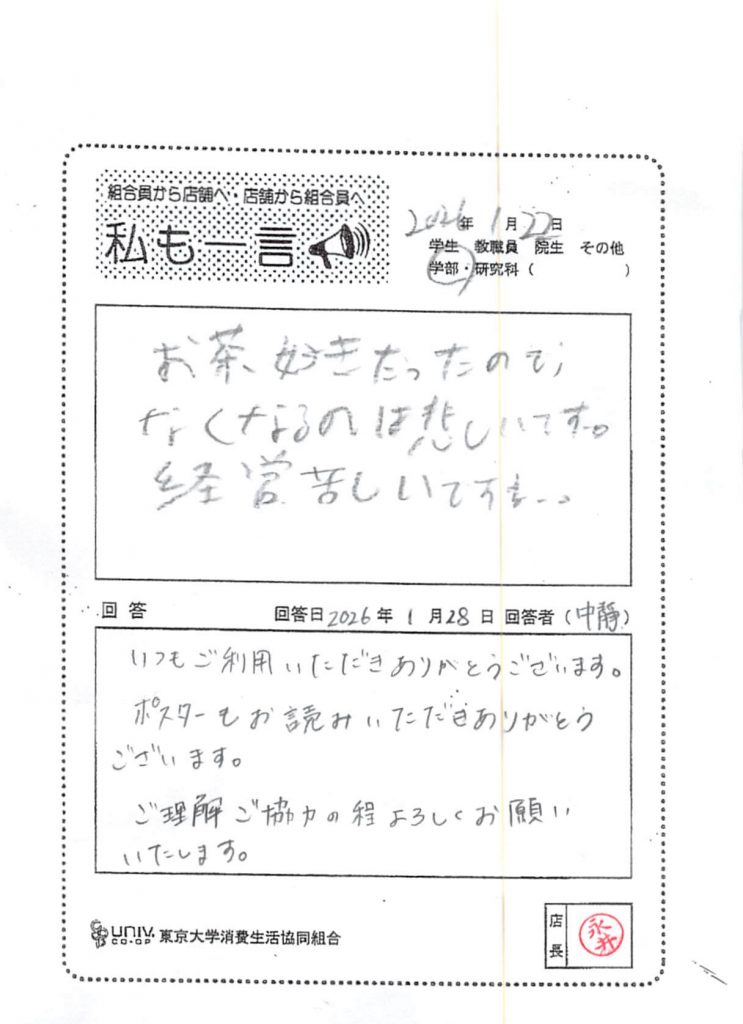 組合員から店舗へ・店舗から組合員へ
私も一言
2026年1月22日
学生 教職員 院生 その他
学部・研究科( )
お茶、好きだったので、
なくなるのは悲しいです。
経営苦しいですね...
回答 回答日2026年1月28日 回答者(中静)
いつもご利用いただきありがとうございます。
ポスターもお読みいただきありがとう
ございます。
ご理解ご協力の程よろしくお願い
いたします。
UNIV. CO-OP 東京大学消費生活協同組合
店長
永井